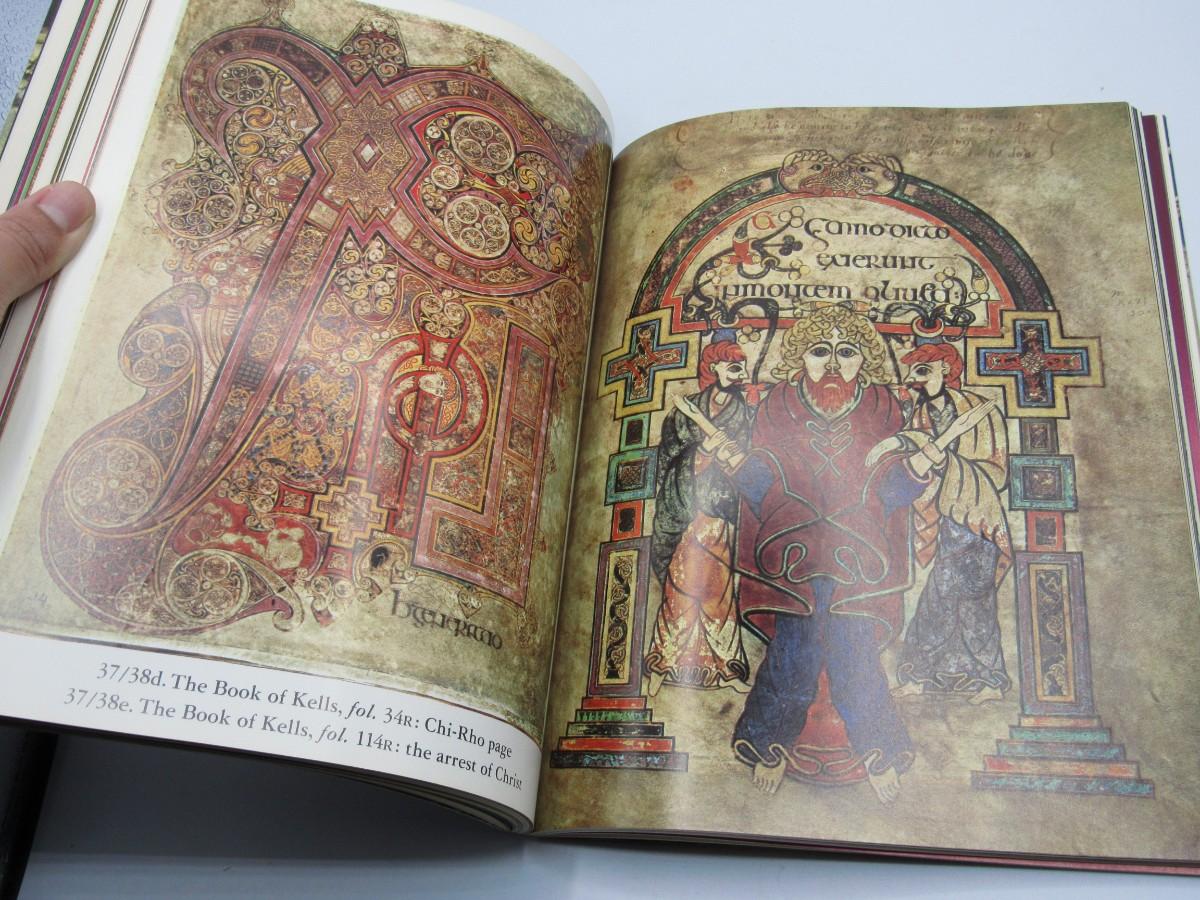 h generatio
37/38d. The Book of Kells, fol. 34R: Chi-Rho page
37/38e. The Book of Kells, fol. 114R: the arrest of Christ
ymno dicto
exierunt
montem